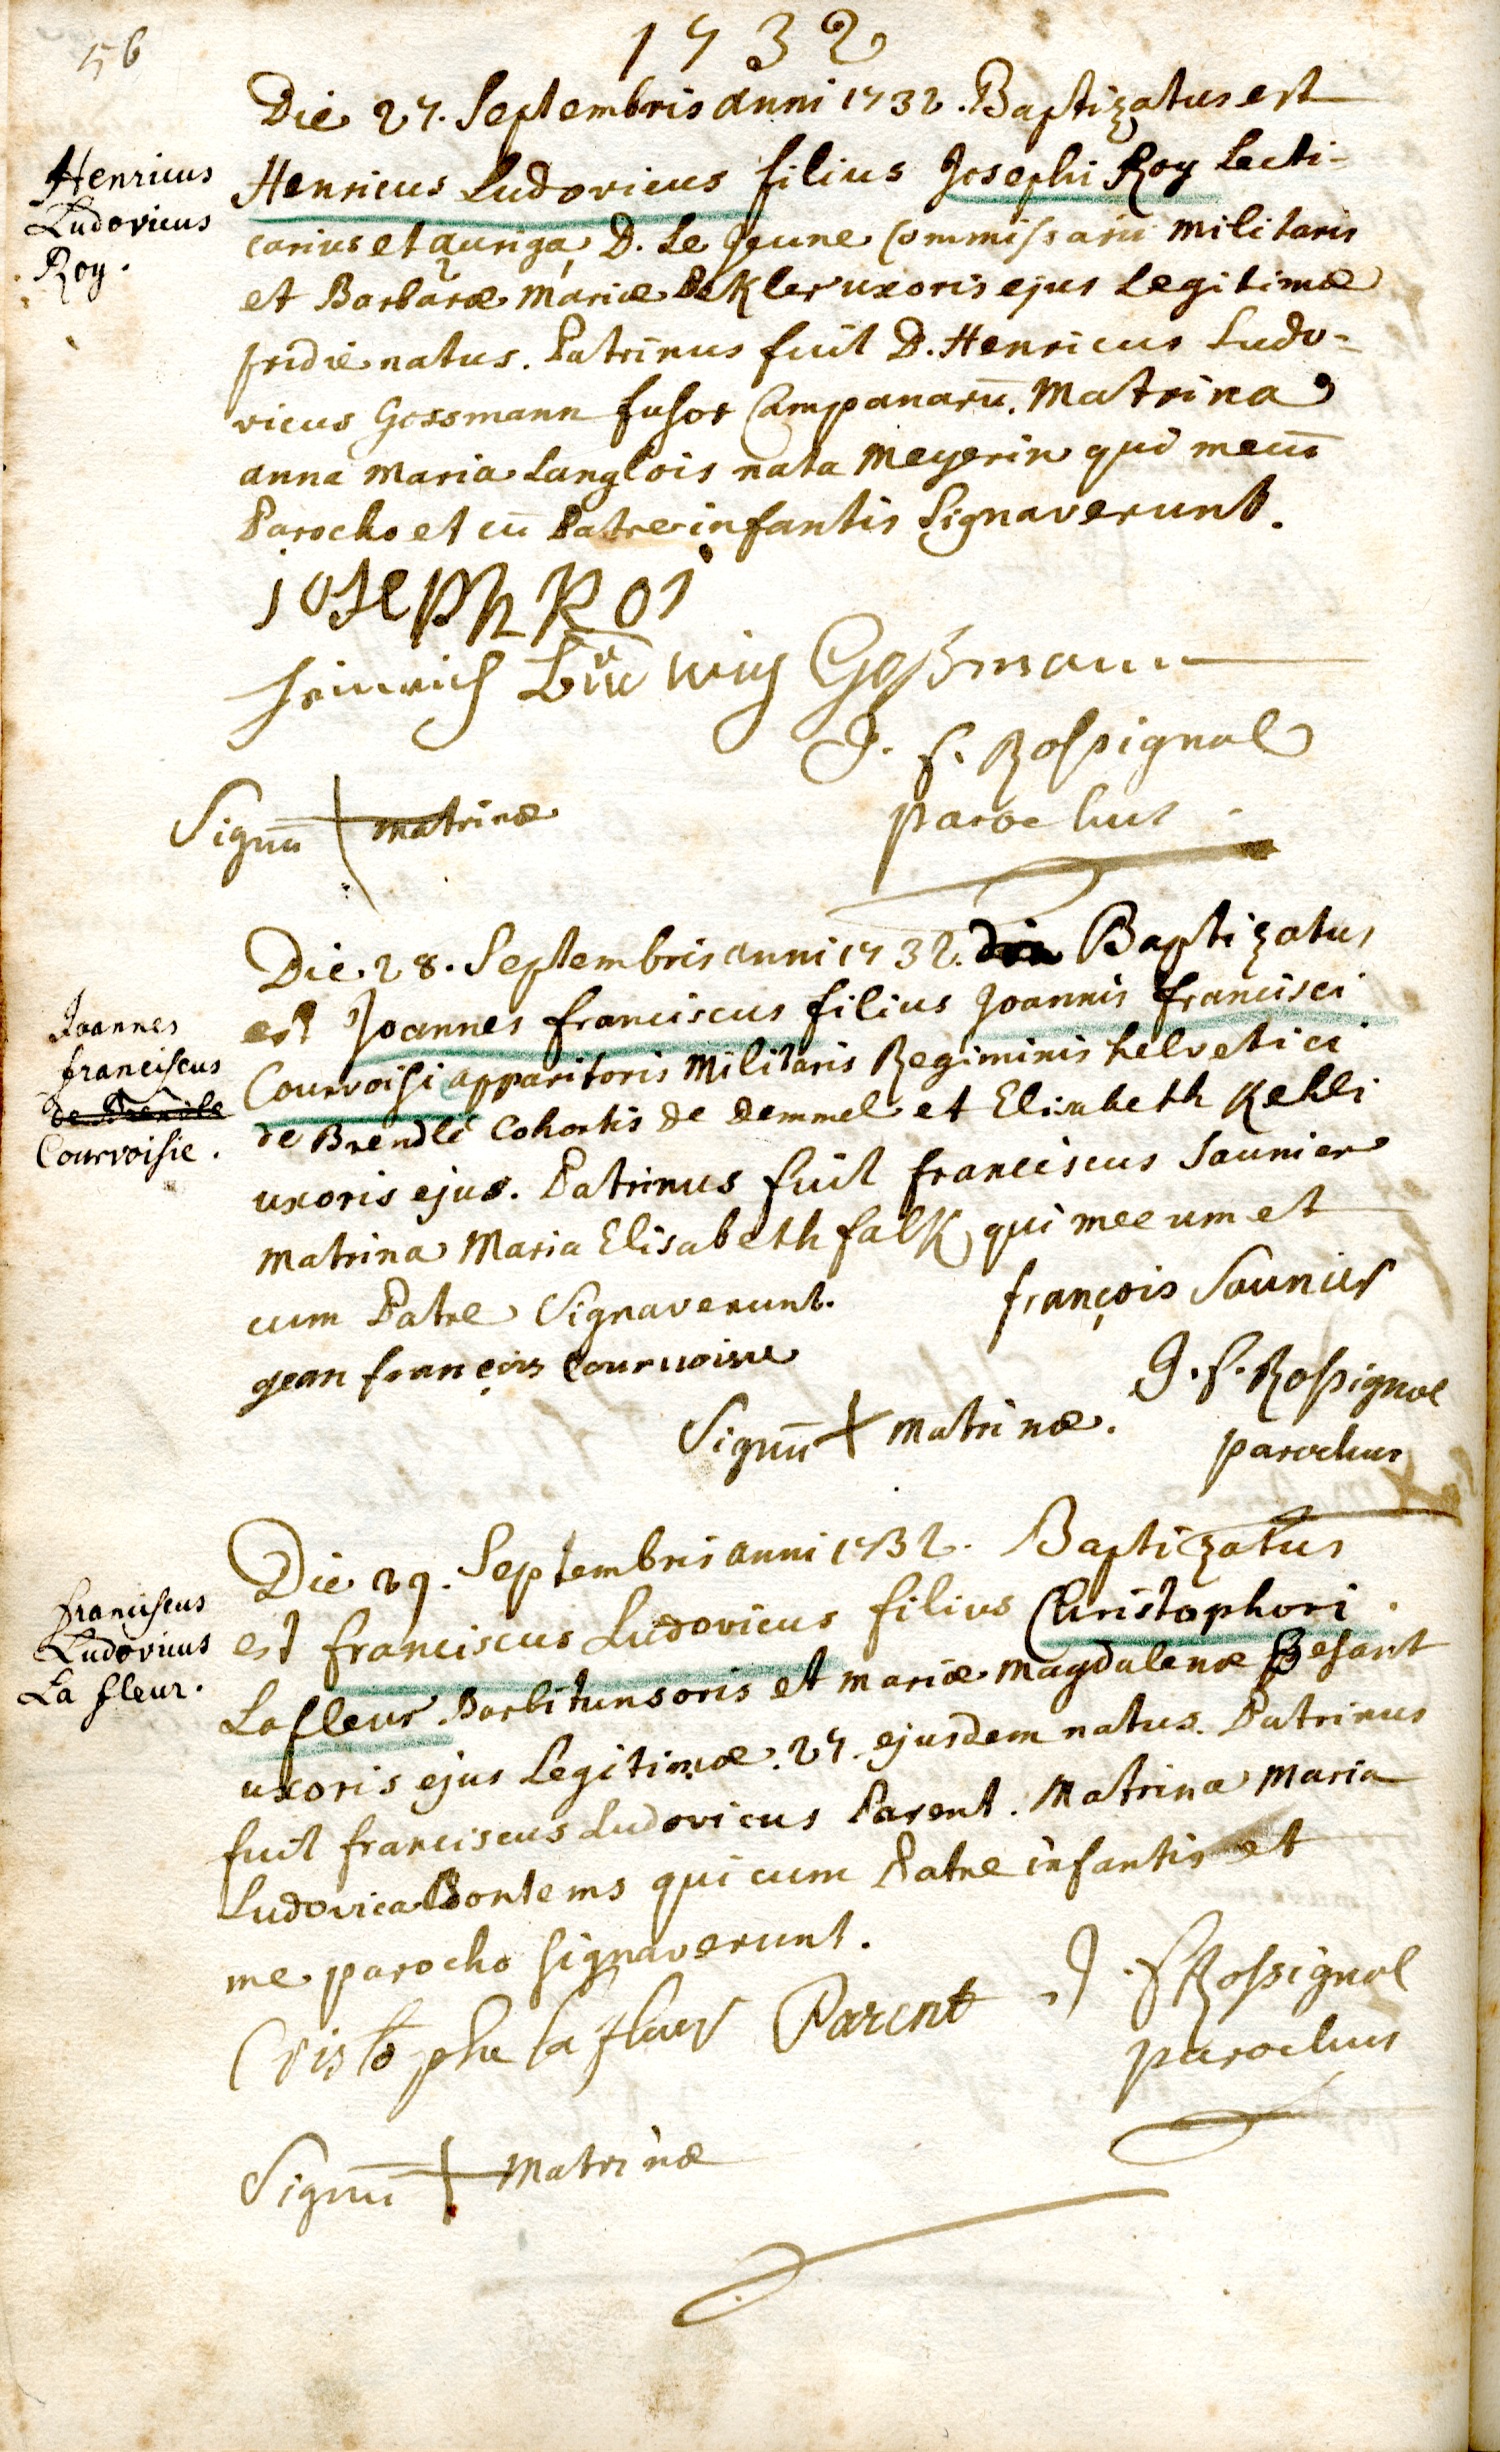 56
1732
Die 27. Septembris anni 1732. Baptizatus est
Henricus
Ludovicus
Roy.
Henricus Ludovicus filius Josephi Roy Lecti-
carius et auriga D. Le Jeune Commissarii militaris
et Barbaræ Mariæ Dekler uxoris ejus Legitimæ
pridie natus. Patrinus fuit D. Henricus Ludo-
vicus Gossmann fusor Campanarū. Matrina
anna Maria Langlois nata Meyerin qui mecū
Parocho et cū Patre infantis Signaverunt.
ioseph Roi
Heinrich Ludwig Goßmann
J. f. Rossignol
parochus
Signū + matrinæ
Die 28. Septembris anni 1732. Baptizatus
Joannes
franciscus
de Brendle
Courvoisie.
est Joannes franciscus filius Joannis francisci
Courvoisi apparitoris Militaris Regiminis helvetici
de Brendlé Cohortis de Demmel et Elisabeth Kehli
uxoris ejus. Patrinus fuit franciscus Saunier
Matrina Maria Elisabeth falk qui mecum et
cum Patre Signaverunt.
françois Saunier
gean françois Courvoisie
J. f. Rossignol
parochus
Signū + Matrinæ.
Die 29. Septembris anni 1732. Baptizatus
franciscus
Ludovicus
La fleur.
est franciscus Ludovicus filius Christophori
Lafleur Barbitunsoris et mariæ Magdalenæ Besant
uxoris ejus Legitimæ. 27. ejusdem natus. Patrinus
fuit franciscus Ludovicus Parent. Matrina Maria
Ludovica Bontems qui cum Patre infantis et
me parocho signaverunt.
Cristophe la fleur Parent J. f Rossignol
parochus
Signū + Matrinæ